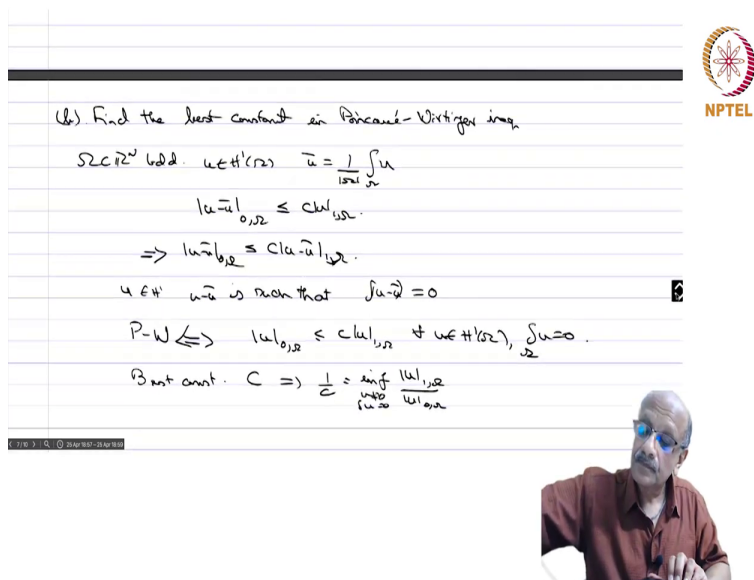 (b). Find the best constant in Poincaré-Wirtinger ineq
Ω⊂ℝᴺ bdd. u∈H¹(Ω) ū = 1/|Ω| ∫_Ω u
|u-ū|₀,Ω ≤ C|u|₁,Ω.
⇒ |u-ū|₀,Ω ≤ C|u-ū|₁,Ω.
u∈H¹ u-ū is such that ∫(u-ū) = 0
P-W ⇔ |u|₀,Ω ≤ C|u|₁,Ω ∀ u∈H¹(Ω), ∫_Ω u=0.
Best const. C ⇒ 1/C = inf_{u≠0, ∫u=0} |u|₁,Ω / |u|₀,Ω
NPTEL
7/10
25 Apr 18:57 - 25 Apr 18:59